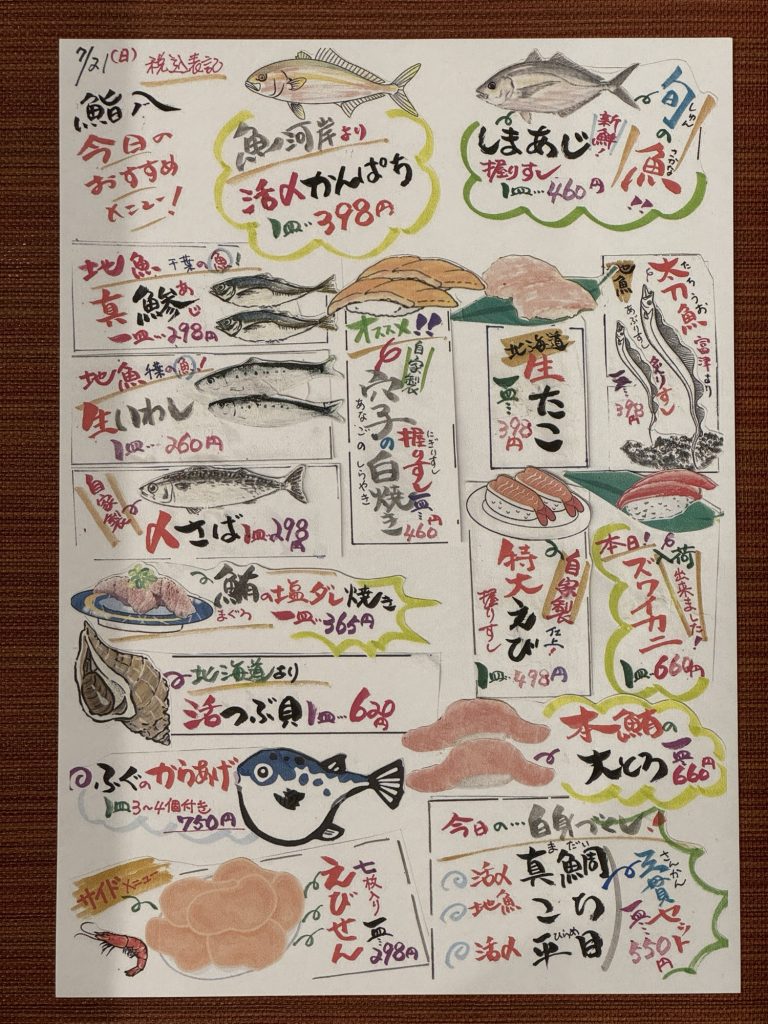 7/21(日) 税込表記
鮨八
今日の
おすすめ
メニュー!
魚河岸より
活〆かんぱち
1皿…398円
旬の魚!!
しゅん
さかな
新鮮!
しまあじ
握りすし
1皿…460円
地魚 千葉の魚!
真鯵
あじ
一皿…298円
地魚 千葉の魚!
生いわし
1皿…260円
自家製
〆さば 1皿…298円
オススメ!!
自家製
穴子の白焼き
あなごのしらやき
握りすし
にぎりすし
一皿…460円
北海道
生たこ
一皿…398円
地魚
太刀魚
たちうお
富津より
炙りすし
あぶりすし
一皿…398円
鮪の塩ダレ焼き
まぐろ
一皿…365円
特大えび
握りすし
自家製仕上!
1皿…498円
本日!入荷
出来ました!
ズワイカニ
1皿…660円
北海道より
活つぶ貝 1皿…620円
本鮪の
大とろ
一皿…660円
ふぐのからあげ
1皿3~4個付き
750円
サイドメニュー
えびせん
七枚入り
一皿…298円
今日の…白身づくし!
活〆 真鯛
まだい
地魚 こち
活〆 平目
ひらめ
三貫セット
さんかん
一皿…550円